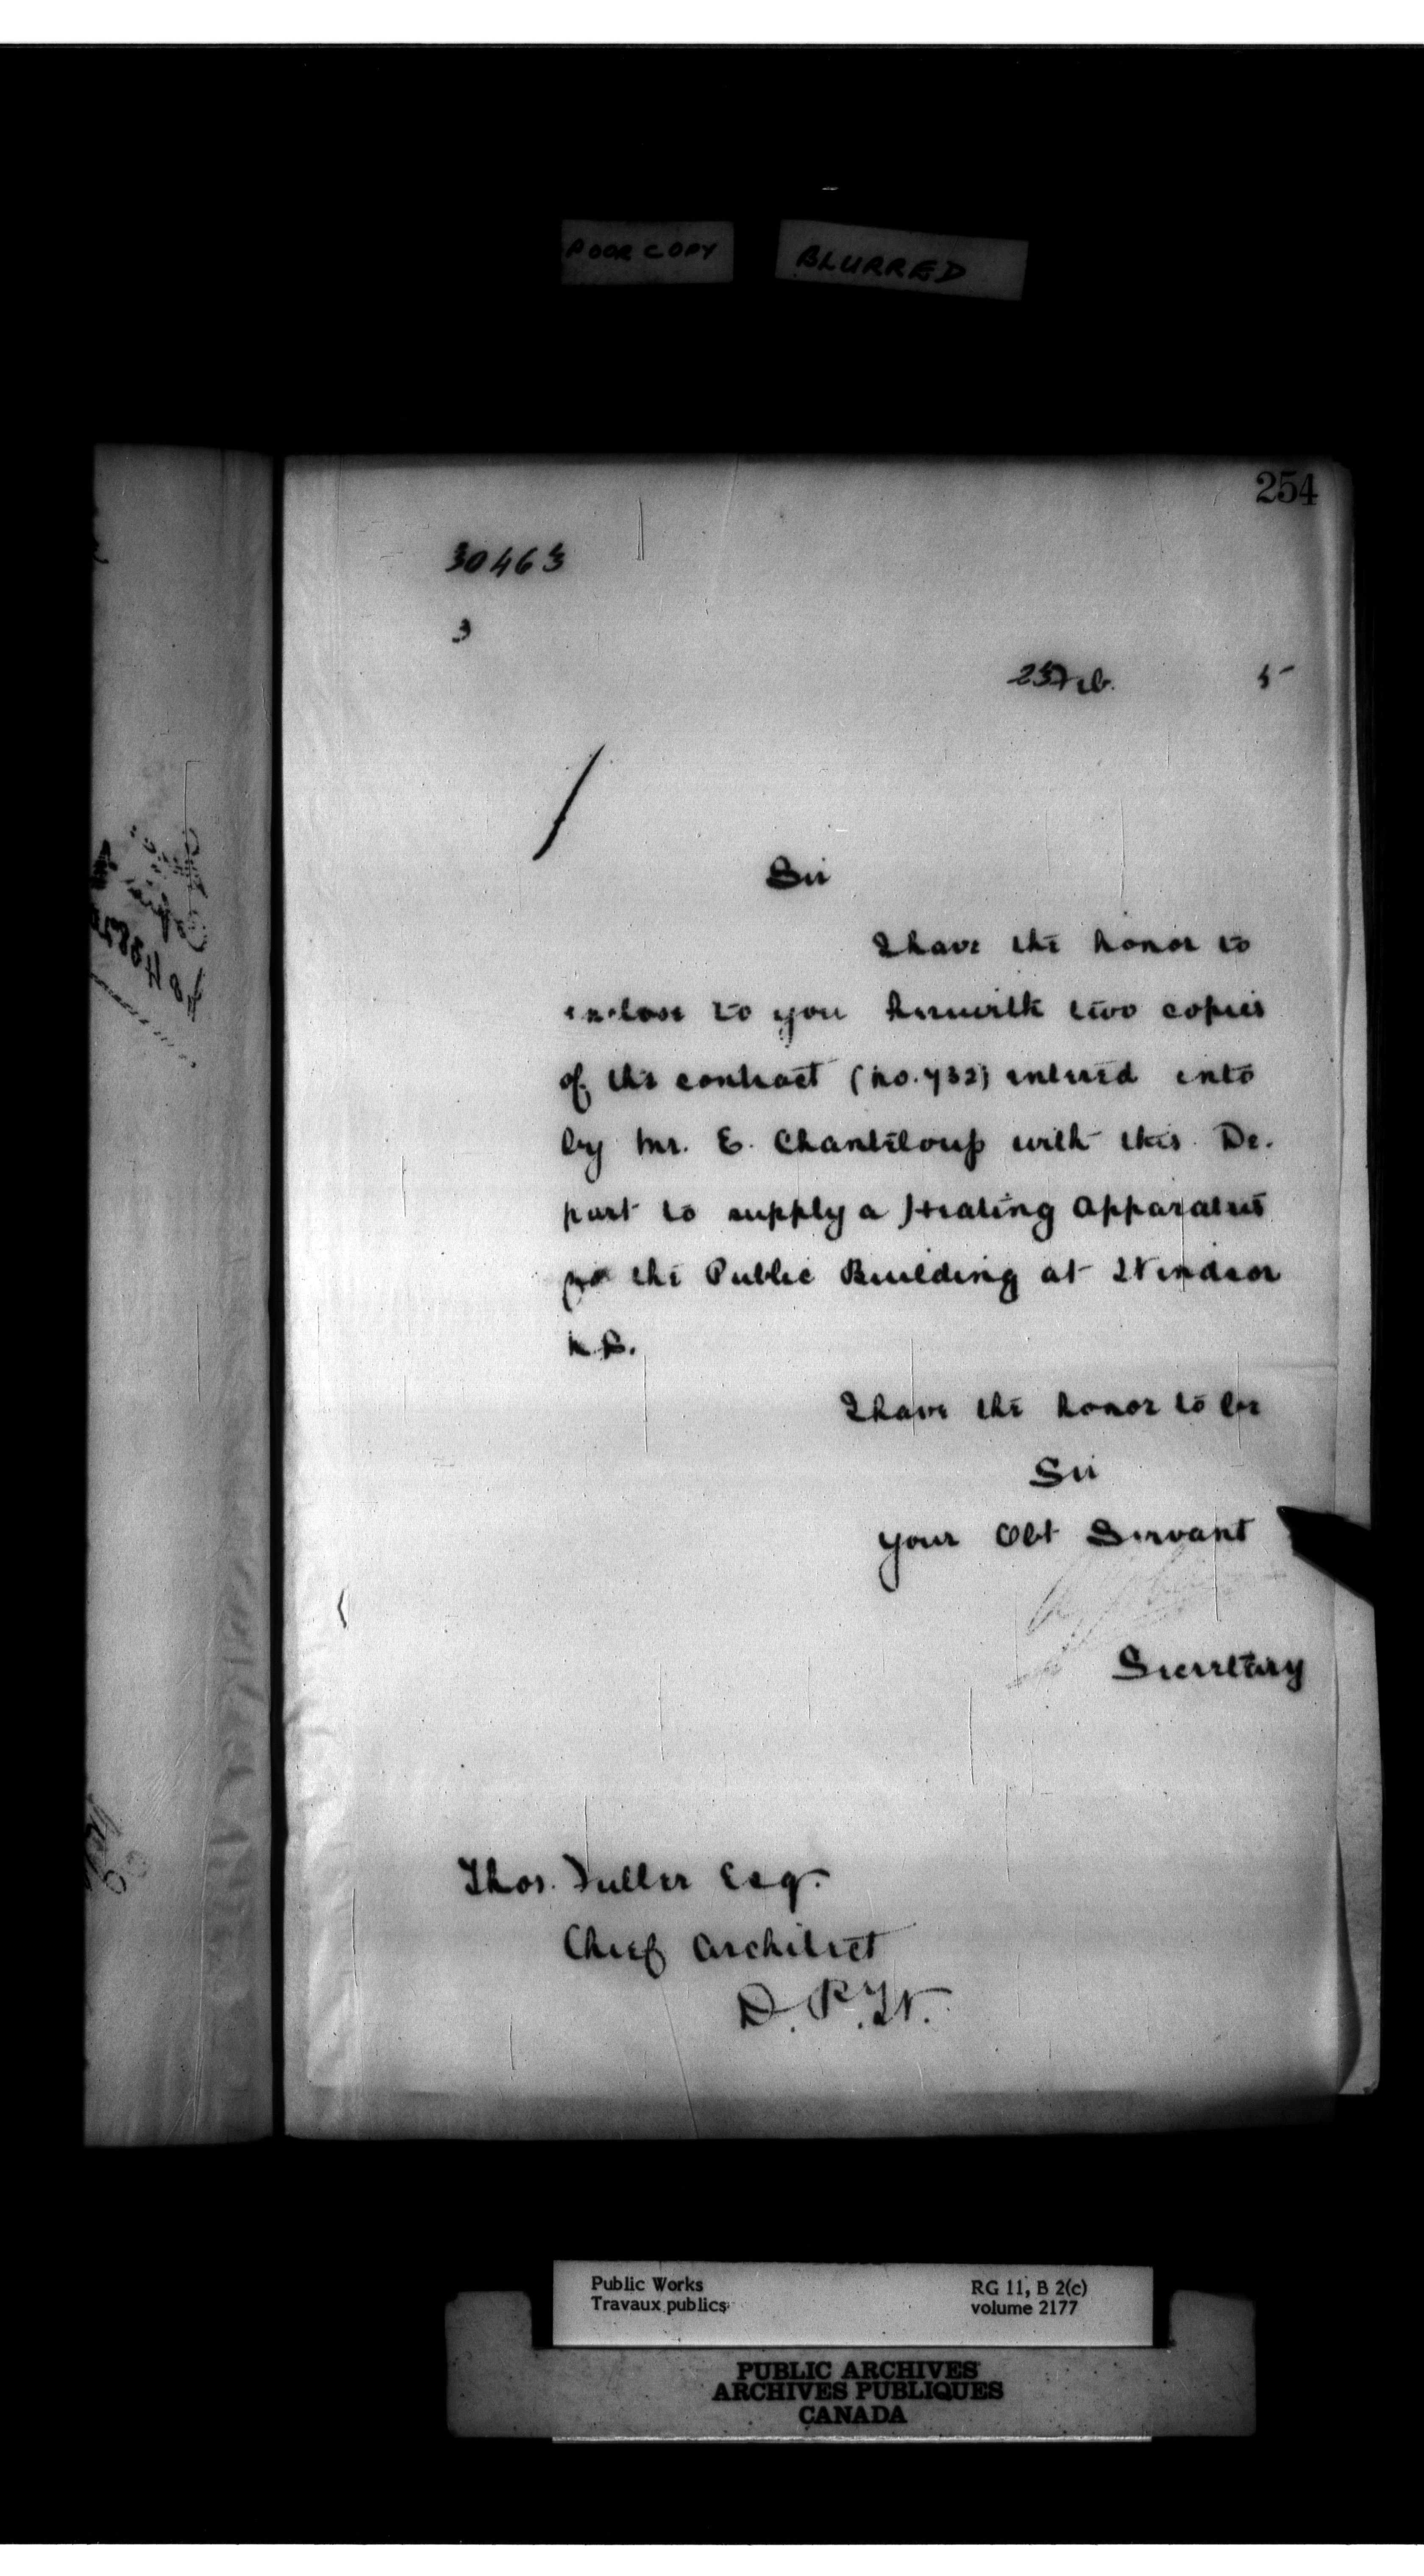 POOR COPY BLURRED
254
30463
3
25 Feb. 5
Sir
I have the honor to
enclose to you herewith two copies
of the contract (No. 732) entered into
by Mr. E. Chanteloup with this De.
part to supply a Heating Apparatus
for the Public Building at Windsor
N.S.
I have the honor to be
Sir
your Obt Servant
Secretary
Thos. Fuller Esq.
Chief Architect
D. P. W.
Public Works
Travaux publics
RG 11, B 2(c)
volume 2177
PUBLIC ARCHIVES
ARCHIVES PUBLIQUES
CANADA